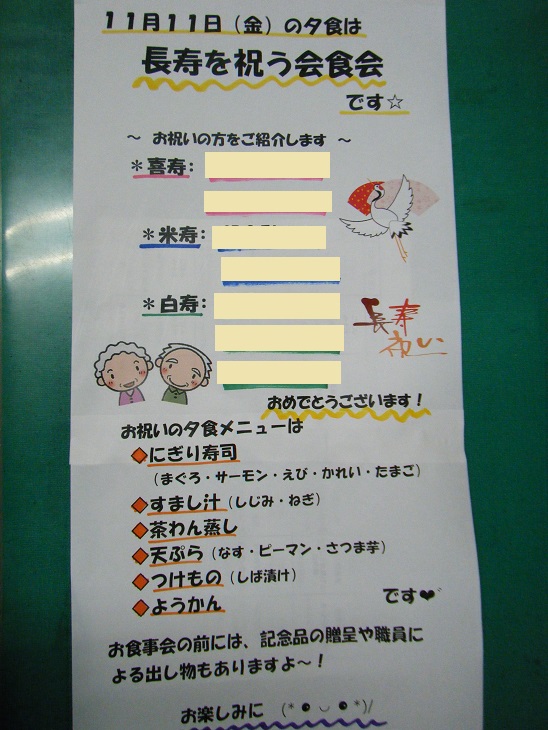 11月11日(金)の夕食は
長寿を祝う会食会
です☆
～ お祝いの方をご紹介します ～
＊喜寿：
＊米寿：
＊白寿：
長寿
祝い
おめでとうございます！
お祝いの夕食メニューは
◆にぎり寿司
(まぐろ・サーモン・えび・かれい・たまご)
◆すまし汁(しじみ・ねぎ)
◆茶わん蒸し
◆天ぷら(なす・ピーマン・さつま芋)
◆つけもの(しば漬け)
◆ようかん
です❤
お食事会の前には、記念品の贈呈や職員に
よる出し物もありますよ～！
お楽しみに (*●◡●*)/